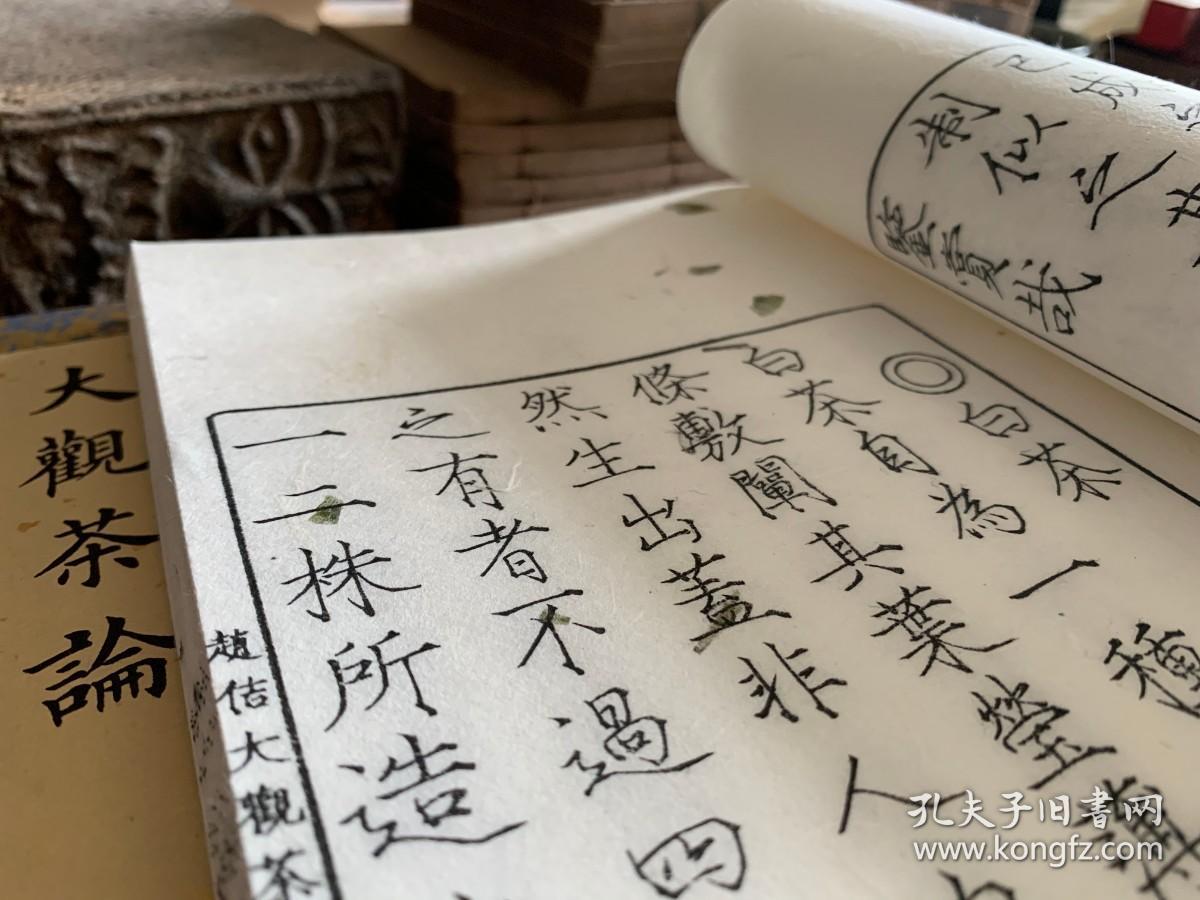 制似之
鑒賞哉
◎白茶
白茶自為一種
條敷闡其葉瑩薄
然生出蓋非人
之有者不過四
一二株所造
趙佶大觀茶
大觀茶論
孔夫子旧書网
www.kongfz.com